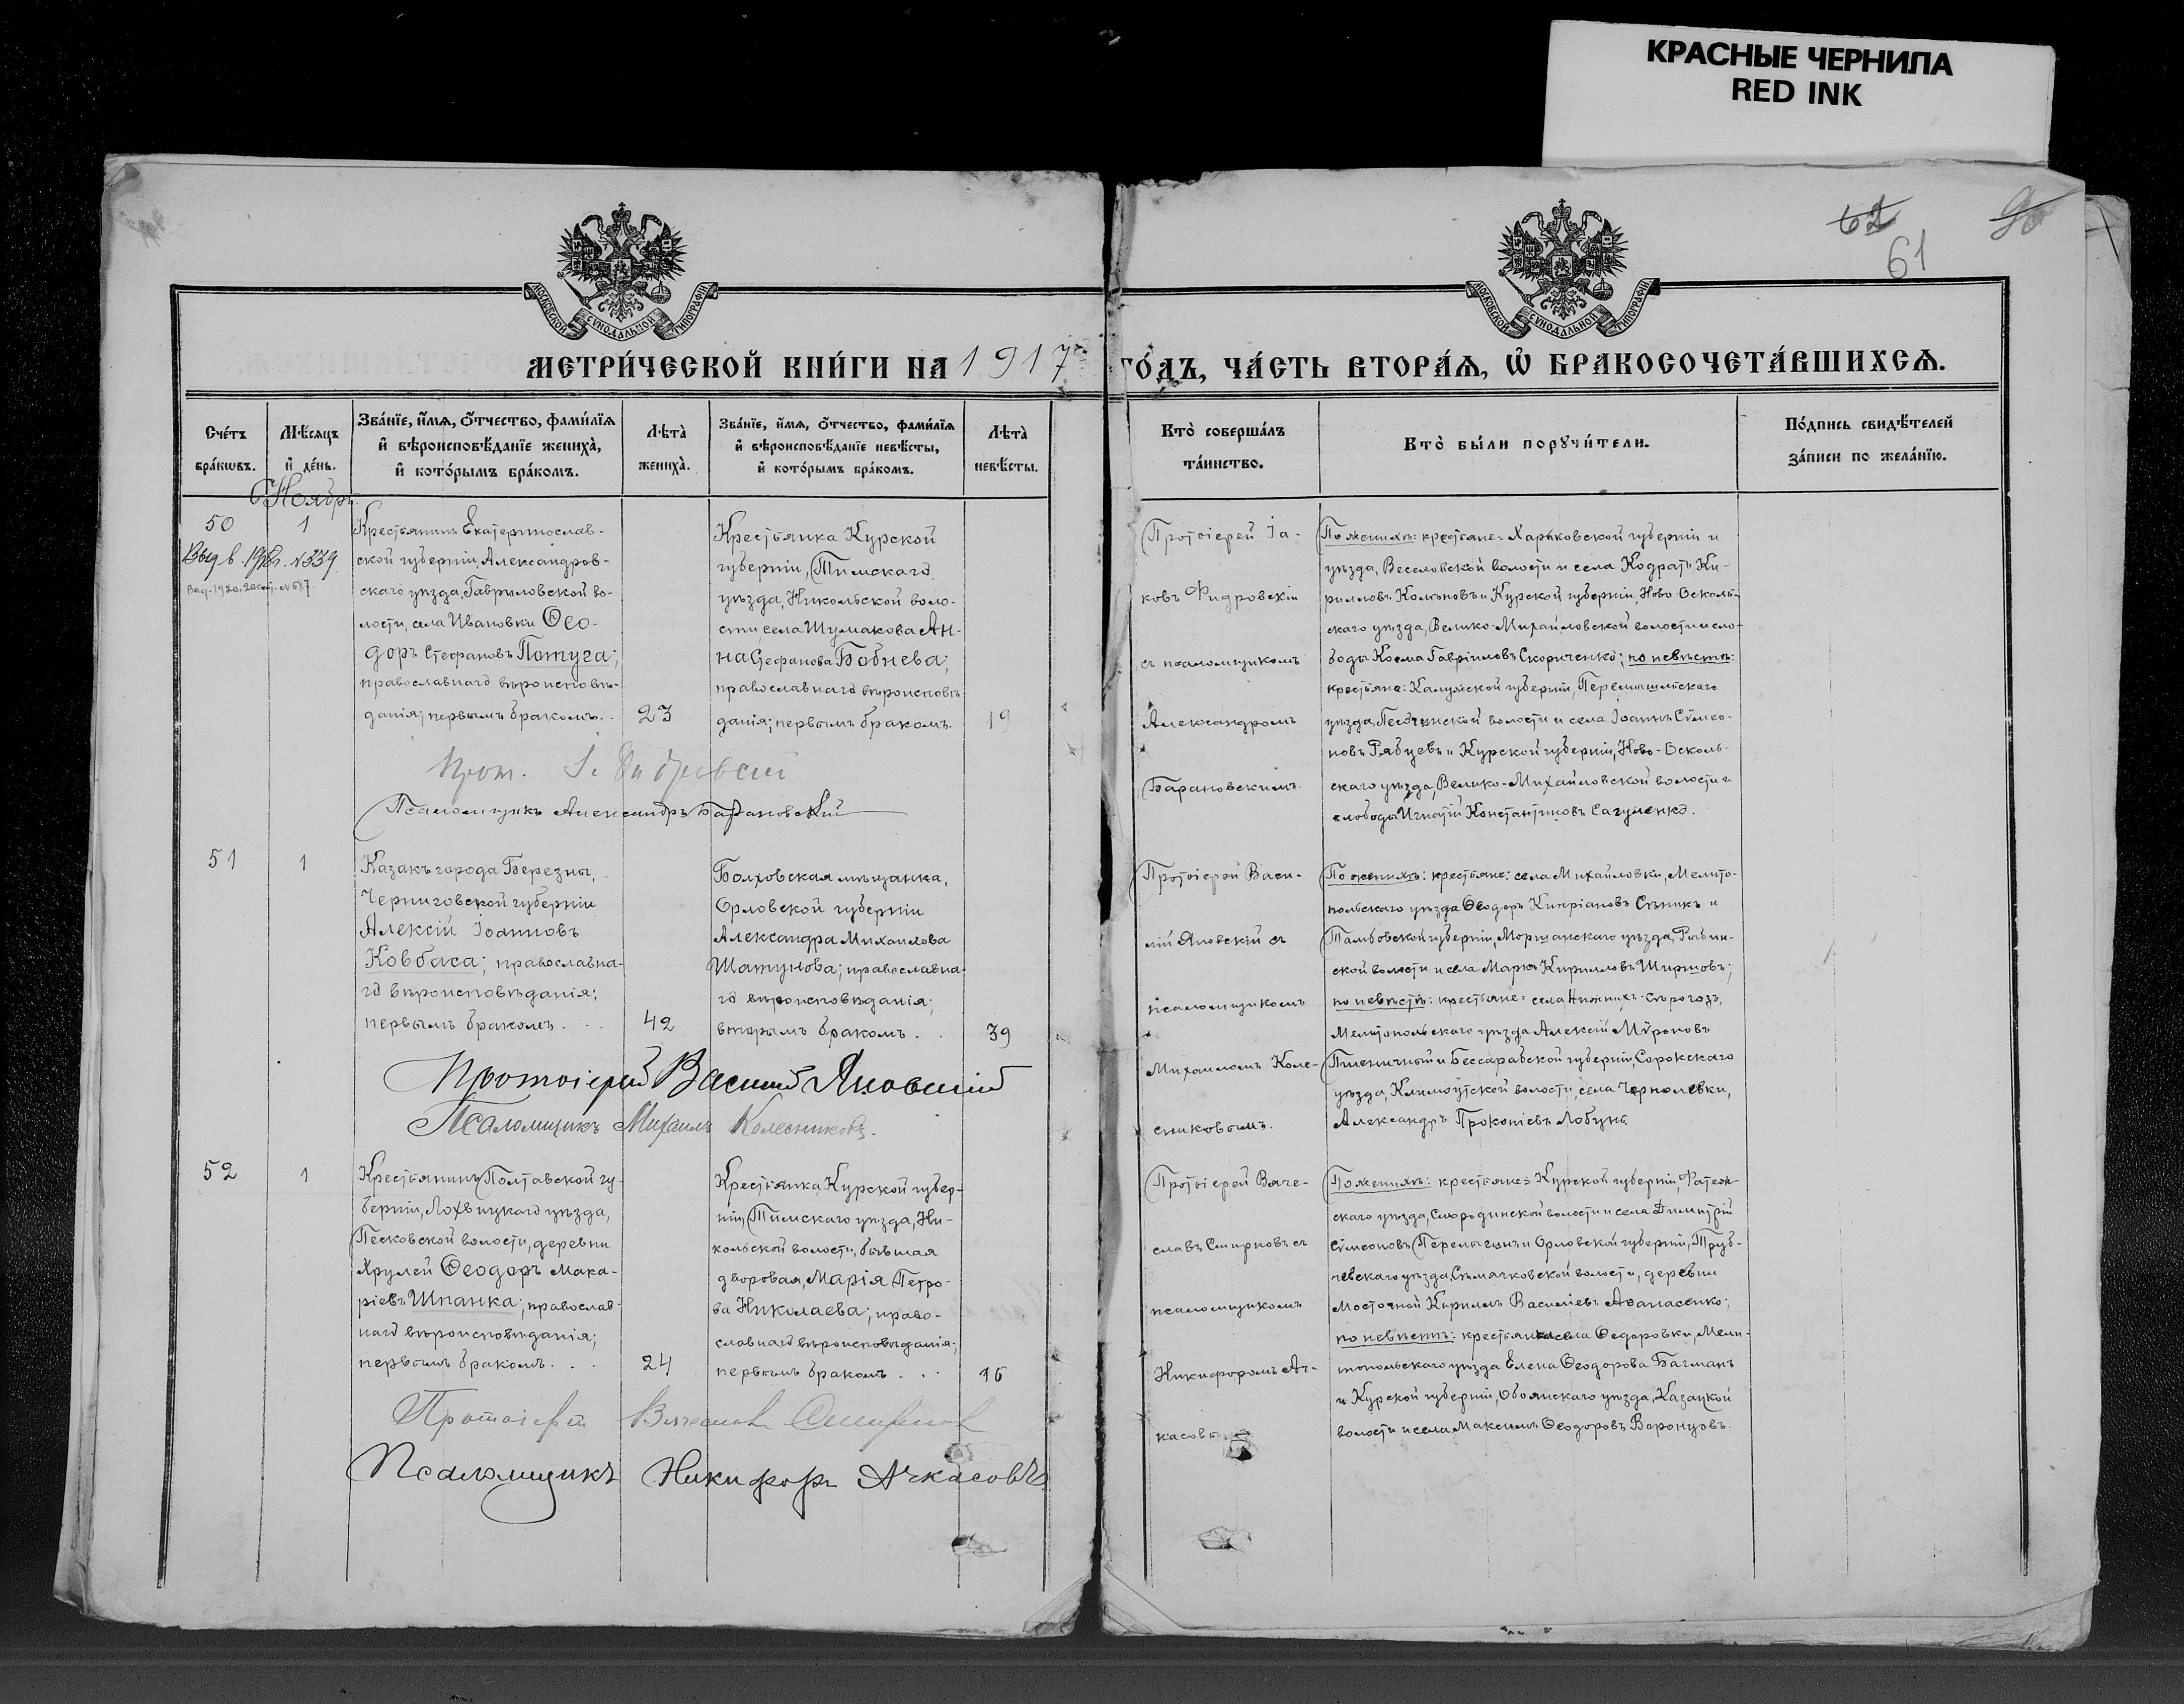 КРАСНЫЕ ЧЕРНИЛА
RED INK
62
90
61
МОСКОВСКОЙ СѴНОДАЛЬНОЙ ТИПОГРАФІИ
МОСКОВСКОЙ СѴНОДАЛЬНОЙ ТИПОГРАФІИ
МЕТРИ́ЧЕСКОЙ КНИ́ГИ НА 1917 ГО́ДЪ, ЧА́СТЬ ВТОРА́Ѧ, Ѽ БРАКОСОЧЕТА́ВШИХСѦ.
Сче́тъ
бра́кѡвъ.
Мѣ́сяцъ
и҆ де́нь.
Зва́нїе, и҆́мѧ, ѻ҆́тчество, фами́лїѧ
и҆ вѣроисповѣ́данїе жениха̀,
и҆ кото́рымъ бра́комъ.
Лѣта̀
жениха̀.
Зва́нїе, и҆́мѧ, ѻ҆́тчество, фами́лїѧ
и҆ вѣроисповѣ́данїе невѣ́сты,
и҆ кото́рымъ бра́комъ.
Лѣта̀
невѣ́сты.
Кто̀ соверша́лъ
та́инство.
Кто̀ бы́ли порꙋчи́тели.
По́дпись свидѣ́телей
за́писи по жела́нїю.
Ноябрь
50
1
Выд в. 1918г. №339
Выд. 1920 №687
Крестьянинъ Екатеринослав-
ской губерніи, Александров-
скаго уѣзда, Гавриловской во-
лости, села Ивановки Ѳео-
доръ Стефановъ Потуга;
православнаго вѣроисповѣ-
данія; первымъ бракомъ. .
23
Крестьянка Курской
губерніи, Тимскаго
уѣзда, Никольской воло-
сти, села Шумакова Ан-
на Стефанова Бобнева;
православнаго вѣроисповѣ-
данія; первымъ бракомъ.
19
Протоіерей Іа-
ковъ Фидровскій
съ псаломщикомъ
Александромъ
Барановскимъ.
По женихѣ: крестьяне: Харьковской губерніи и
уѣзда, Веселовской волости и села Кодратъ Ки-
рилловъ и Курской губерніи, Ново-Осколь-
скаго уѣзда, Велико-Михайловской волости и сло-
боды Косма Гавріиловъ Скориченко; по невѣстѣ:
крестьяне: Калужской губерніи, Перемышльскаго
уѣзда, волости и села Іоаннъ Сѵмео-
новъ Рябцевъ и Курской губерніи, Ново-Осколь-
скаго уѣзда, Велико-Михайловской волости и
слободы Игнатій Константиновъ Сагуленко.
Прот. І. Фидровскій
Псаломщикъ Александръ Барановскій
51
1
Казакъ города Березны,
Черниговской губерніи
Алексій Іоанновъ
Ковбаса; православна-
го вѣроисповѣданія;
первымъ бракомъ. . .
42
Болховская мѣщанка,
Орловской губерніи
Александра Михаилова
Шатунова; православна-
го вѣроисповѣданія;
вторымъ бракомъ. .
39
Протоіерей Васи-
лій Яновскій съ
псаломщикомъ
Михаиломъ Коле-
сниковымъ.
По женихѣ: крестьяне: села Михайловки, Мелито-
польскаго уѣзда Ѳеодоръ Кипріановъ Сѣникъ и
Тамбовской губерніи, Моршанскаго уѣзда, Рыбин-
ской волости и села Маркъ Кирилловъ Ширшовъ;
по невѣстѣ: крестьяне: села Нижнихъ-Сѣрогозъ,
Мелитопольскаго уѣзда Алексій Мѵроновъ
Пшеничный и Бессарабской губерніи, Сорокскаго
уѣзда, Климоутской волости, села Чернолевки,
Александръ Прокопіевъ Лобунь.
Протоіерей Василій Яновскій
Псаломщикъ Михаилъ Колесниковъ.
52
1
Крестьянинъ Полтавской гу-
берніи, Лохвицкаго уѣзда,
Песковской волости, деревни
Хрулей Ѳеодоръ Мака-
ріевъ Шпанка; православ-
наго вѣроисповѣданія;
первымъ бракомъ. . .
24
Крестьянка Курской губер-
ніи, Тимскаго уѣзда, Ни-
кольской волости, бывшая
дворовая, Марія Петро-
ва Николаева; право-
славнаго вѣроисповѣданія;
первымъ бракомъ . . .
16
Протоіерей Вяче-
славъ Смирновъ съ
псаломщикомъ
Никифоромъ Ач-
касовы
По женихѣ: крестьяне: Курской губерніи, Фатеж-
скаго уѣзда, Смородинской волости и села Димитрій
Сѵмеоновъ и Орловской губерніи, Труб-
чевскаго уѣзда, Сѣмячковской волости, деревни
Мосточной Кириллъ Василіевъ Аѳанасенко;
по невѣстѣ: крестьянка села Ѳеодоровки, Мели-
топольскаго уѣзда Елена Ѳеодорова Багманъ
и Курской губерніи, Обоянскаго уѣзда, Казацкой
волости и села Максимъ Ѳеодоровъ Воронцовъ.
Протоіерей Вячеславъ Смирновъ
Псаломщикъ Никифоръ Ачкасовъ